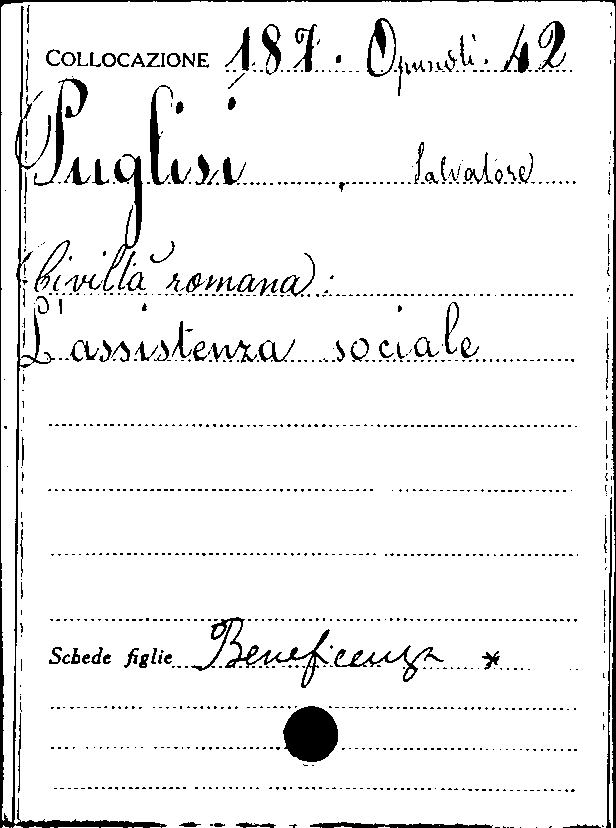 COLLOCAZIONE 187. Opuscoli. 42
Puglisi, Salvatore
Civiltà romana:
L'assistenza sociale
Schede figlie Beneficenza *